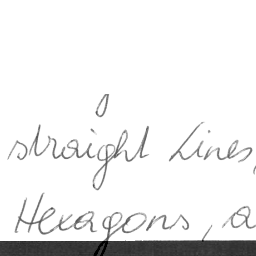 straight Lines,
Hexagons, a